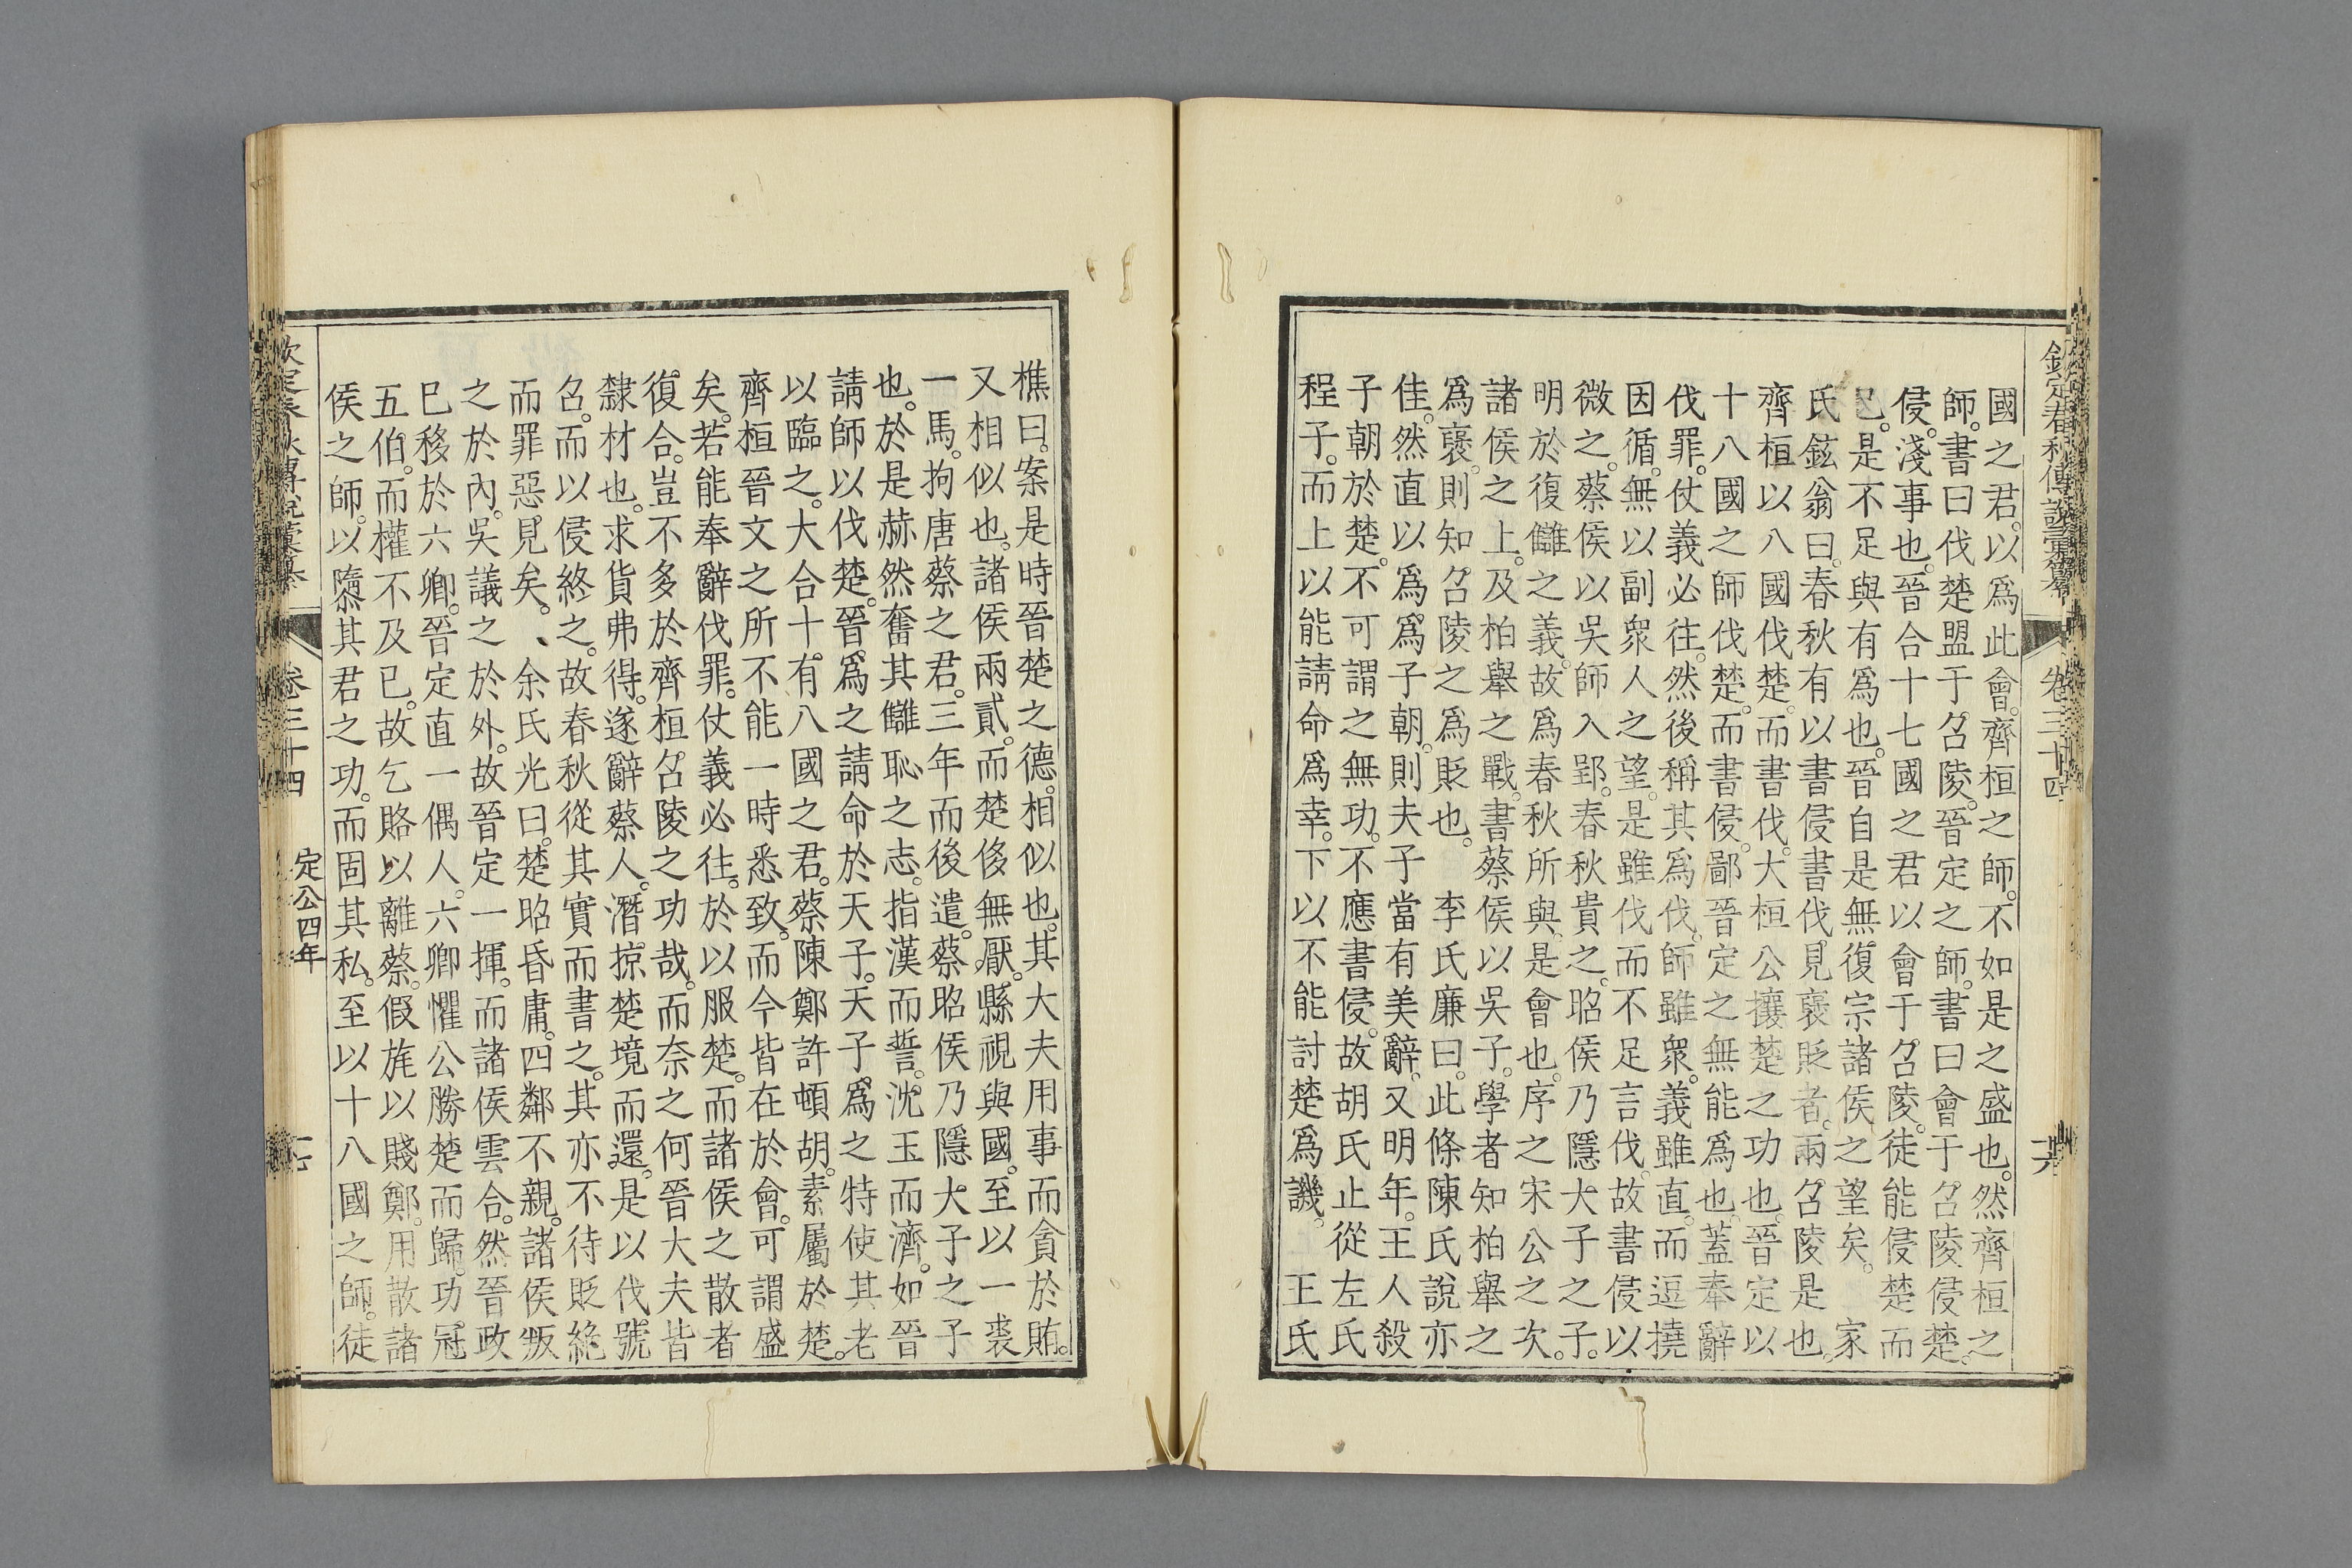 欽定春秋傳說彙纂 卷三十四
國之君。以爲此會。齊桓之師。不如是之盛也。然齊桓之
師。書曰伐楚盟于召陵。晉定之師。書曰會于召陵侵楚。
侵。淺事也。晉合十七國之君以會于召陵。徒能侵楚而
已。是不足與有爲也。晉自是無復宗諸侯之望矣。 家
氏鉉翁曰。春秋有以書侵書伐。見襃貶者。兩召陵是也。
齊桓以八國伐楚。而書伐。大桓公攘楚之功也。晉定以
十八國之師伐楚。而書侵。鄙晉定之無能爲也。蓋奉辭
伐罪。仗義必往。然後稱其爲伐。師雖衆。義雖直。而逗撓
因循。無以副衆人之望。是雖伐而不足言伐。故書侵以
微之。蔡侯以吳師入郢。春秋貴之。昭侯乃隱犬子之子。
明於復讎之義。故爲春秋所與。是會也。序之宋公之次。
諸侯之上。及柏舉之戰。書蔡侯以吳子。學者知柏舉之
爲襃。則知召陵之爲貶也。 李氏廉曰。此條陳氏說亦
佳。然直以爲爲子朝。則夫子當有美辭。又明年。王人殺
子朝於楚。不可謂之無功。不應書侵。故胡氏止從左氏
程子。而上以能請命爲幸。下以不能討楚爲譏。 王氏
樵曰。案是時晉楚之德。相似也。其大夫用事而貪於賄。
又相似也。諸侯兩貳。而楚侈無厭。縣視與國。至以一裘
一馬。拘唐蔡之君。三年而後遣。蔡昭侯乃隱犬子之子
也。於是赫然奮其讎恥之志。指漢而誓。沈玉而濟。如晉
請師以伐楚。晉爲之請命於天子。天子爲之特使其老
以臨之。大合十。有八國之君。蔡陳鄭許頓胡。素屬於楚。
齊桓晉文之所不能一時悉致。而今皆在於會。可謂盛
矣。若能奉辭伐罪。仗義必往。於以服楚。而諸侯之散者
復合。豈不多於齊桓召陵之功哉。而奈之何晉大夫皆
隸材也。求貨弗得。遂辭蔡人。潛掠楚境而還。是以伐號
召。而以侵終之。故春秋從其實而書之。其亦不待貶絶
而罪惡見矣。 余氏光曰。楚昭昏庸。四鄰不親。諸侯叛
之於內。吳議之於外。故晉定一揮。而諸侯雲合。然晉政
已移於六卿。晉定直一偶人。六卿懼公勝楚而歸。功冠
五伯。而權不及已。故乞賂以離蔡。假旄以賤鄭。用散諸
侯之師。以隳其君之功。而固其私。至以十八國之師。徒
卷三十四 定公四年